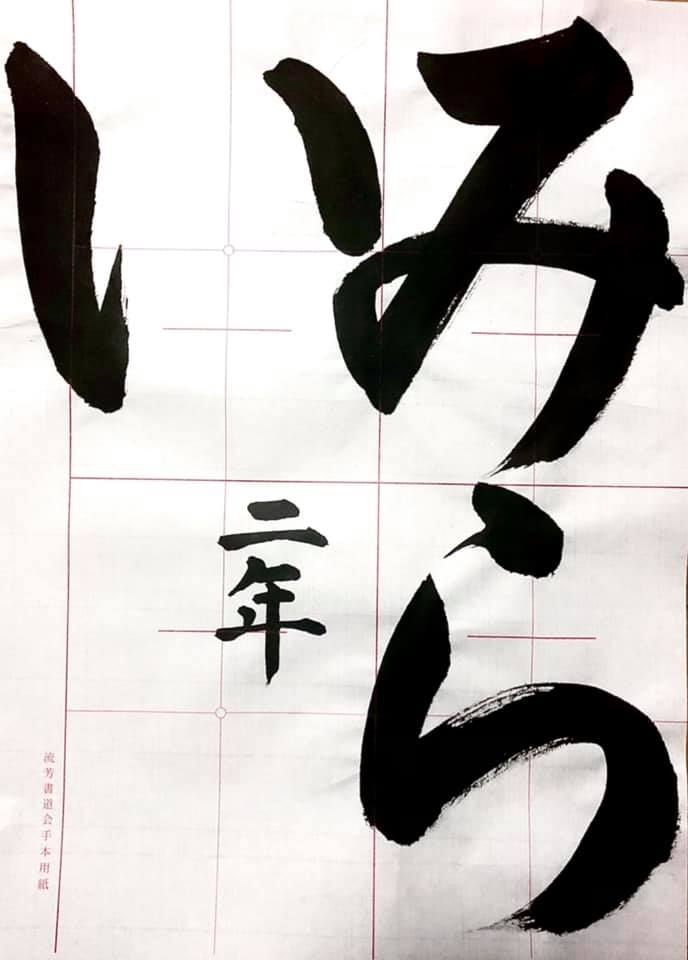 みら
い
二年
流芳書道会手本用紙